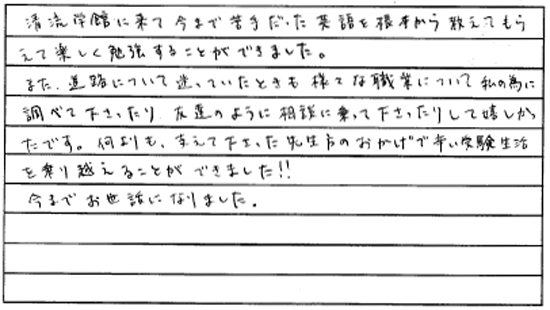 清流学館に来て今まで苦手だった英語を根本から教えてもら
えて楽しく勉強することができました。
また、進路について迷っていたときも様々な職業について私の為に
調べて下さったり、友達のように相談に乗って下さったりして嬉しか
たです。何よりも、支えて下さった先生方のおかげで辛い受験生活
を乗り越えることができました!!
今までお世話になりました。